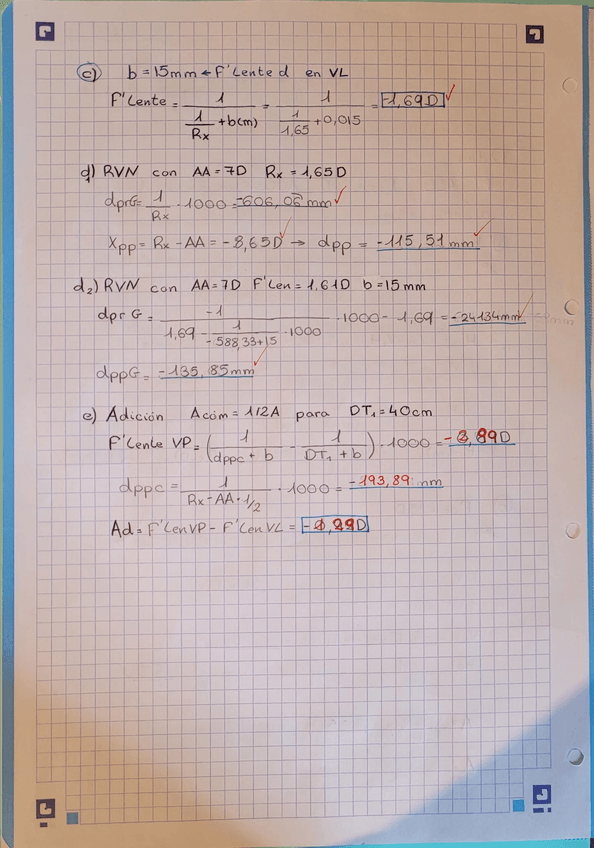 c) b = 15mm ← F'Lente d en VL
F'Lente = 1 / (1/Rx + b(m)) = 1 / (1/1,65 + 0,015) = -1,69D ✓
d) RVN con AA = 7D Rx = 1,65D
dprG = 1/Rx · 1000 = -606,06 mm ✓
Xpp = Rx - AA = -8,65D ✓ → dpp = -115,51 mm ✓
d₂) RVN con AA = 7D F'Len = 1,61D b = 15mm
dpr G = -1 / (1,69 - 1/(-588,33+15) · 1000) · 1000 - 1,69 = -24134mm ✓
dppG = -135,85mm ✓
e) Adición Acom = 1/2A para DT₁ = 40cm
F'Lente VP = (1/(dppc + b) - 1/(DT₁ + b)) · 1000 = - ,89D
dppc = 1 / (Rx - AA · 1/2) · 1000 = -193,89 mm
Ad = F'LenVP - F'LenVL =